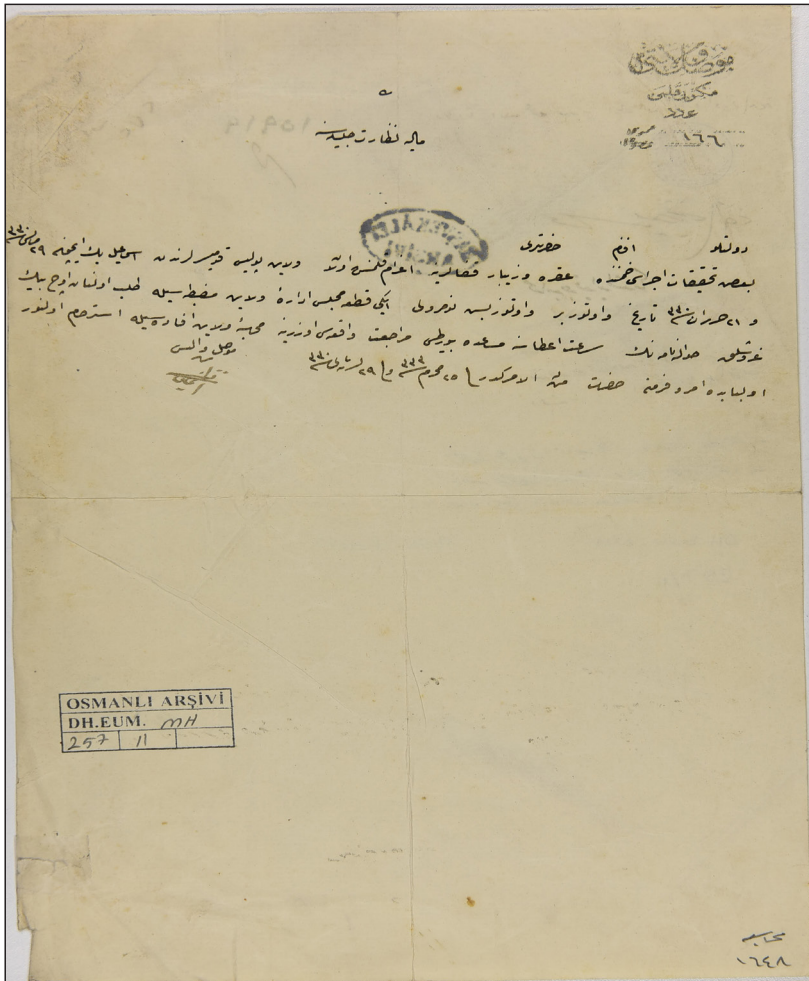 موصل ولايتى
مكتوبى قلمى
عدد
عمومى
خصوصى ١٦٦
ماليه نظارت جليله سنه
دولتلو افندم حضرتلرى
بعض تحقيقات اجراسى ضمننده عقره وزيبار قضالرينه اعزام قلنمش اولان ولايت پوليس قوميسرلرندن اسماعيل بك ايچون ٢٩ مايس ٣٣٠
و ٢١ حزيران ٣٣٠ تاريخ واوتوز بر واوتوز بش نومرولى ايكى قطعه مجلس اداره ولايت مضبطه سيله طلب اولنان اوچ بيك
غروشلق حواله نامه نك سرعت اعطاسنه مساعده بيورلمسى مراجعت واقعه سى اوزرينه محاسبه ولايت افاده سيله استرحام اولنور
اولبابده امر وفرمان حضرت من له الامركدر ٢٥ محرم ٣٣٣ و ٢٩ تشرين ٣٣٠
موصل واليسى
OSMANLI ARŞİVİ
DH.EUM. MH
257 11
محاسبه
١٦٤٨